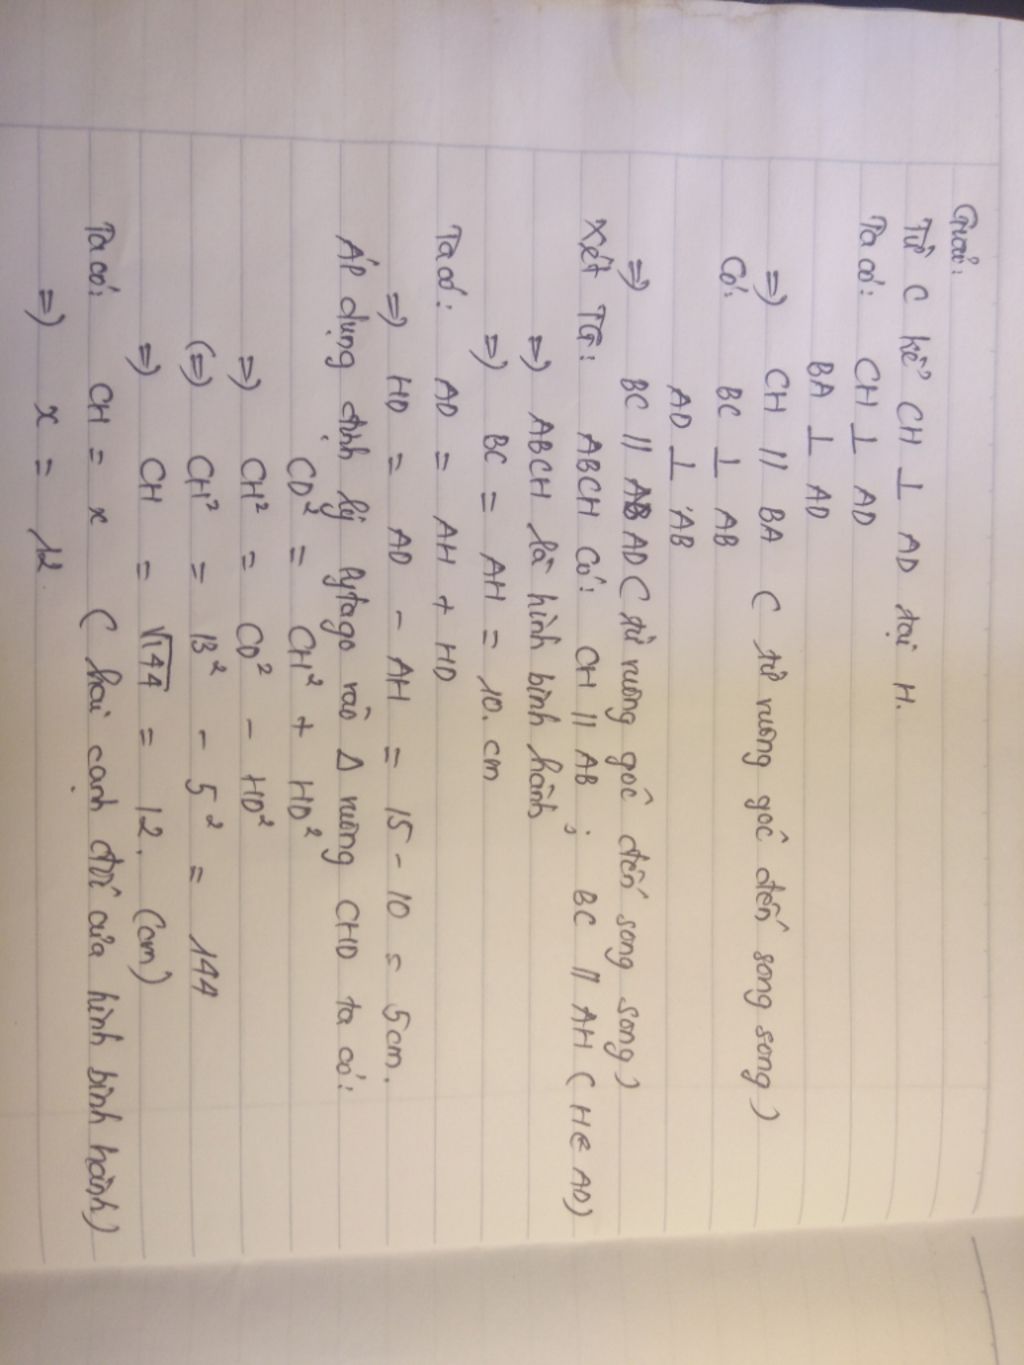 Giải:
Từ C kẻ CH ⊥ AD tại H.
Ta có: CH ⊥ AD
BA ⊥ AD
=) CH // BA ( từ vuông góc đến song song )
Có: BC ⊥ AB
AD ⊥ AB
=) BC // AD ( từ vuông góc đến song song )
Xét TG: ABCH Có: CH // AB ; BC // AH ( H ∈ AD)
=) ABCH là hình bình hành
=) BC = AH = 10. cm
Ta có: AD = AH + HD
=) HD = AD - AH = 15 - 10 = 5cm.
Áp dụng định lý Pytago vào Δ vuông CHD ta có:
CD² = CH² + HD²
=) CH² = CD² - HD²
(=) CH² = 13² - 5² = 144
=) CH = √144 = 12. (cm)
Ta có: CH = x ( hai cạnh đối của hình bình hành)
=) x = 12.